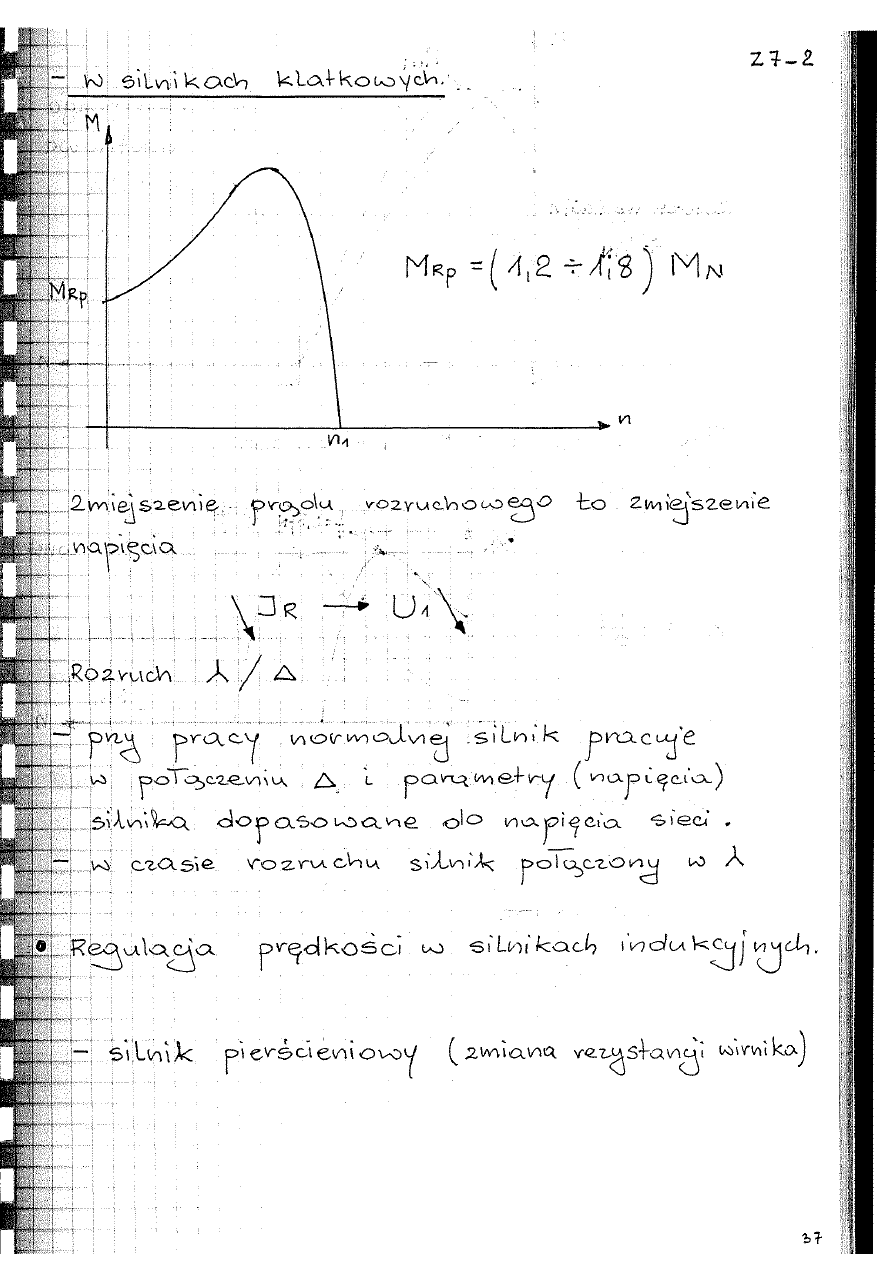 Z7-2
- w silnikach klatkowych.
M
MRp = (1,2 ÷ 1,8) MN
MRp
n
n1
Zmiejszenie prądu rozruchowego to zmiejszenie
napięcia
↘ IR → U1 ↘
Rozruch λ / Δ
- przy pracy normalnej silnik pracuje
w połączeniu Δ i parametry (napięcia)
silnika dopasowane do napięcia sieci.
- w czasie rozruchu silnik połączony w λ
• Regulacja prędkości w silnikach indukcyjnych.
- silnik pierścieniowy (zmiana rezystancji wirnika)
37